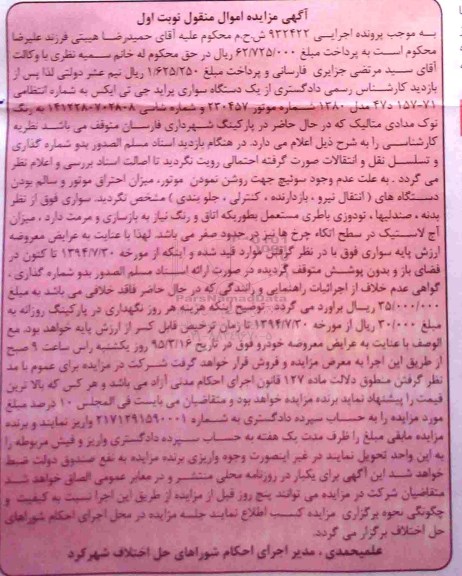 آگهی مزایده اموال منقول نوبت اول
به موجب پرونده اجرایی ۹۳۲۴۲۲ ش.ح.م محکوم علیه آقای حمیدرضا هیبتی فرزند علیرضا
محکوم است به پرداخت مبلغ ۶۲/۷۲۵/۰۰۰ ریال در حق محکوم له خانم سمیه نظری با وکالت
آقای سید مرتضی جزایری فارسانی و پرداخت مبلغ ۱/۶۲۵/۲۵۰ ریال نیم عشر دولتی لذا پس از
بازدید کارشناس رسمی دادگستری از یک دستگاه سواری پراید جی تی ایکس به شماره انتظامی
۱۵۷-۷۱ د۴۷ مدل ۱۳۸۰ شماره موتور ۲۳۰۴۵۷ و شماره شاسی ۱۴۱۲۲۸۰۷۰۲۸۰۸ به رنگ
نوک مدادی متالیک که در حال حاضر در پارکینگ شهرداری فارسان متوقف می باشد نظریه
کارشناسی را به شرح ذیل اعلام می دارد. در هنگام بازدید اسناد مسلم الصدور بدو شماره گذاری
و تسلسل نقل و انتقالات صورت گرفته احتمالی رویت نگردید تا اصالت اسناد بررسی و اعلام نظر
می گردد . به علت عدم وجود سوئیچ جهت روشن نمودن موتور، میزان احتراق موتور و سالم بودن
دستگاه های ( انتقال نیرو ، بازدارنده ، کنترلی ، جلو بندی ) مشخص نگردید. سواری فوق از نظر
بدنه ، صندلیها ، تودوزی باطری مستعمل بطوریکه اتاق و رنگ نیاز به بازسازی و مرمت دارد ، میزان
آج لاستیک در سطح اتکاء چرخ ها نیز در حدود صفر می باشد. لهذا با عنایت به عرایض معروضه
ارزش پایه سواری فوق با در نظر گرفتن موارد قید شده و اینکه از مورخه ۱۳۹۴/۷/۳۰ تا کنون در
فضای باز و بدون پوشش متوقف گردیده در صورت ارائه اسناد مسلم الصدور بدو شماره گذاری ،
گواهی عدم خلاف از اجرائیات راهنمایی و رانندگی که در حال حاضر فاقد خلافی می باشد به مبلغ
۳۵/۰۰۰/۰۰۰ ریسال براورد می گردد. توضیح اینکه هزینه هر روز نگهداری در پارکینگ روزانه به
مبلغ ۳۰/۰۰۰ ریال از مورخه ۱۳۹۴/۷/۳۰ تا زمان ترخیص قابل کسر از ارزش پایه خواهد بود، مع
الوصف با عنایت به عرایض معروضه خودرو فوق در تاریخ ۹۵/۳/۱۶ روز یکشنبه راس ساعت ۹ صبح
از طریق این اجرا به معرض مزایده و فروش قرار خواهد گرفت شرکت در مزایده برای عموم با مد
نظر گرفتن منطوق دلالت ماده ۱۲۷ قانون اجرای احکام مدنی آزاد می باشد و هر کس که بالا ترین
قیمت را پیشنهاد نماید برنده مزایده خواهد بود و متقاضیان می بایست فی المجلس ۱۰ درصد مبلغ
مورد مزایده را به حساب سپرده دادگستری به شماره ۲۱۷۱۲۹۱۵۹۰۰۰۱ واریز نمایند و برنده
مزایده مابقی مبلغ را ظرف مدت یک هفته به حساب سپرده دادگستری واریز و فیش مربوطه را
به این واحد تحویل نمایند در غیر اینصورت وجوه واریزی برنده مزایده به نفع صندوق دولت ضبط
خواهد شد این آگهی برای یکبار در روزنامه محلی منتشر و در معابر عمومی الصاق خواهد شد
متقاضیان شرکت در مزایده می توانند پنج روز قبل از مزایده از طریق این اجرا نسبت به کیفیت و
چگونگی نحوه برگزاری مزایده کسب اطلاع نمایند جلسه مزایده در محل اجرای احکام شوراهای
حل اختلاف برگزار می گردد.
علمیحمدی ، مدیر اجرای احکام شوراهای حل اختلاف شهرکرد
ParsNamadData